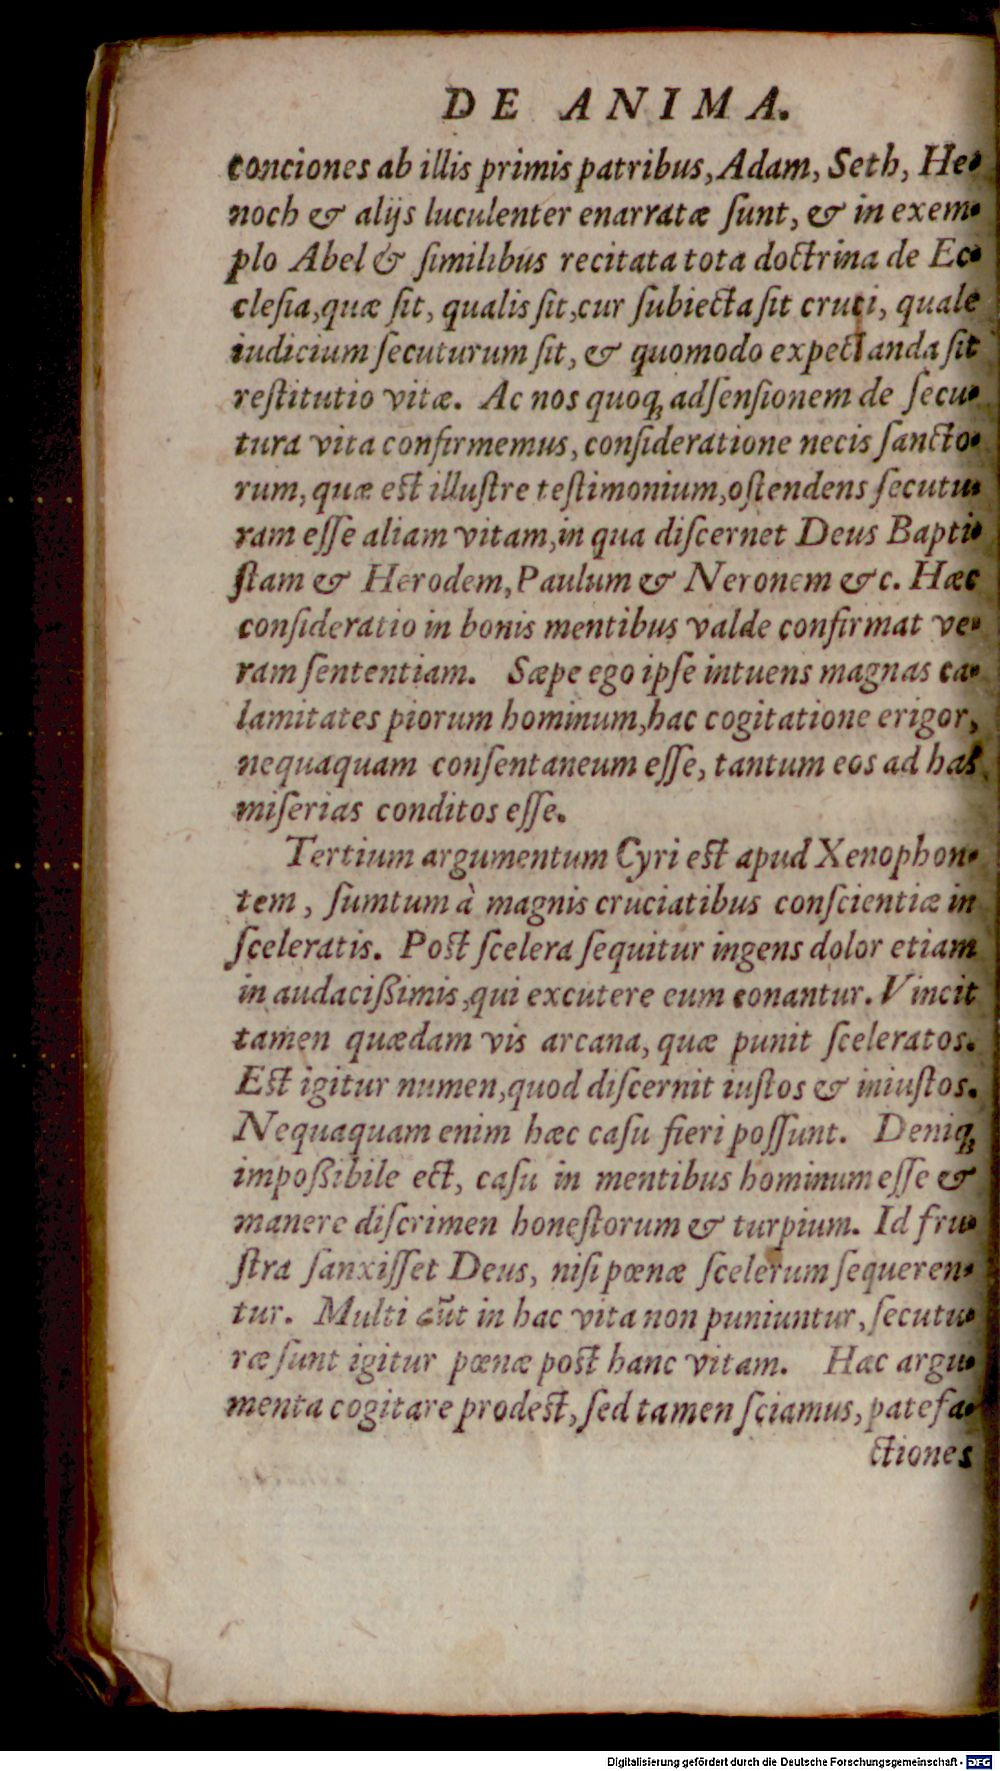 DE ANIMA.
conciones ab illis primis patribus, Adam, Seth, He-
noch & alijs luculenter enarratæ ſunt, & in exem-
plo Abel & ſimilibus recitata tota doctrina de Ec-
cleſia, quæ ſit, qualis ſit, cur ſubiecta ſit cruci, quale
iudicium ſecuturum ſit, & quomodo expectanda ſit
reſtitutio vitæ. Ac nos quoq; adſenſionem de ſecu-
tura vita confirmemus, conſideratione necis ſancto-
rum, quæ eſt illuſtre teſtimonium, oſtendens ſecutu-
ram eſſe aliam vitam, in qua diſcernet Deus Bapti-
ſtam & Herodem, Paulum & Neronem &c. Hæc
conſideratio in bonis mentibus valde confirmat ve-
ram ſententiam. Sæpe ego ipſe intuens magnas ca-
lamitates piorum hominum, hac cogitatione erigor,
nequaquam conſentaneum eſſe, tantum eos ad has
miſerias conditos eſſe.
Tertium argumentum Cyri eſt apud Xenophon-
tem, ſumtum à magnis cruciatibus conſcientiæ in
ſceleratis. Poſt ſcelera ſequitur ingens dolor etiam
in audacißimis, qui excutere eum conantur. Vincit
tamen quædam vis arcana, quæ punit ſceleratos.
Eſt igitur numen, quod diſcernit iuſtos & iniuſtos.
Nequaquam enim hæc caſu fieri poſſunt. Deniq;
impoßibile ect, caſu in mentibus hominum eſſe &
manere diſcrimen honeſtorum & turpium. Id fru-
ſtra ſanxiſſet Deus, niſi pœnæ ſcelerum ſequeren-
tur. Multi aũt in hac vita non puniuntur, ſecutu-
ræ ſunt igitur pœnæ poſt hanc vitam. Hac argu-
menta cogitare prodeſt, ſed tamen ſciamus, patefa-
ctiones
Digitalisierung gefördert durch die Deutsche Forschungsgemeinschaft - DFG